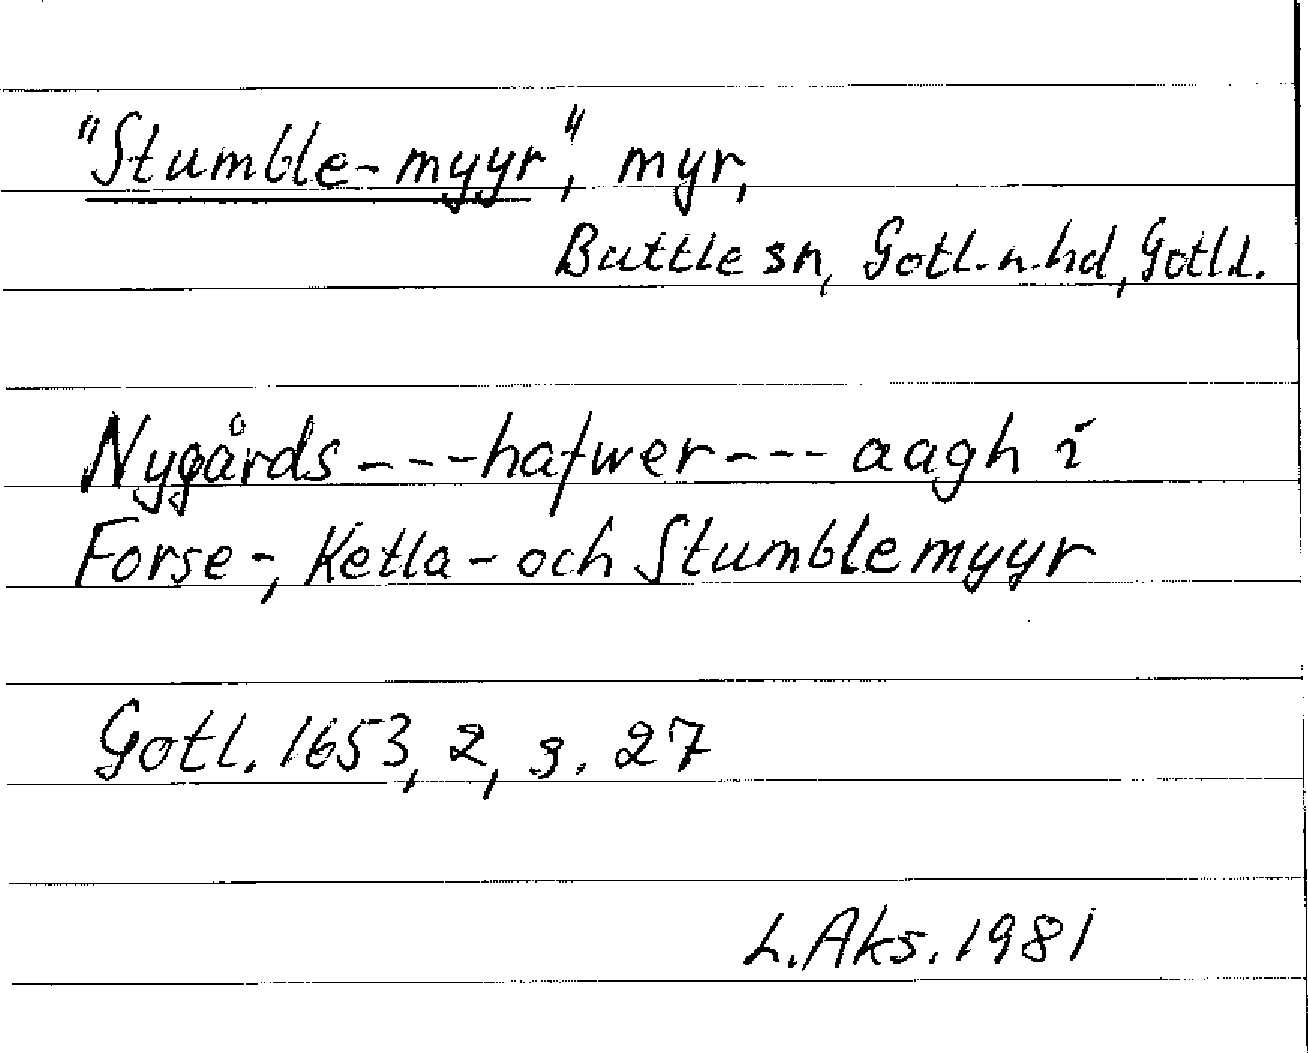 "Stumble-myyr", myr,
Buttle sn, Gotl. n. hd, Gotl. l.
Nygårds --- hafwer --- aagh i
Forse-, Ketla- och Stumblemyyr
Gotl. 1653, 2, s. 27
L. Aks. 1981